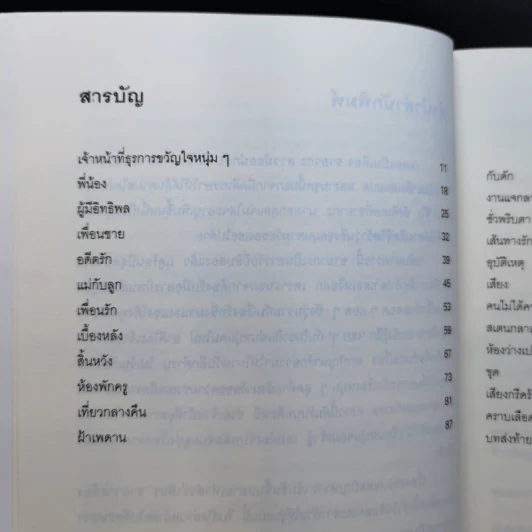 สารบัญ
เจ้าหน้าที่ธุรการขวัญใจหนุ่ม ๆ 11
พี่น้อง 18
ผู้มีอิทธิพล 25
เพื่อนชาย 32
อดีตรัก 39
แม่กับลูก 45
เพื่อนรัก 53
เบื้องหลัง 59
สิ้นหวัง 67
ห้องพักครู 73
เที่ยวกลางคืน 81
ฝ้าเพดาน 87
กับดัก
งานแจกลา
ชั่วพริบตา
เส้นทางรัก
อุบัติเหตุ
เสียง
คนไม่ได้
สแตนกลาง
ห้องว่าง
ชุด
เสียงกรีด
คราบเลือด
บทส่งท้าย